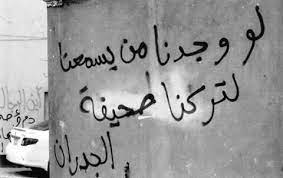 لو وجدنا من يسمعنا
لتركنا صحيفة
الجدران
دم واحد